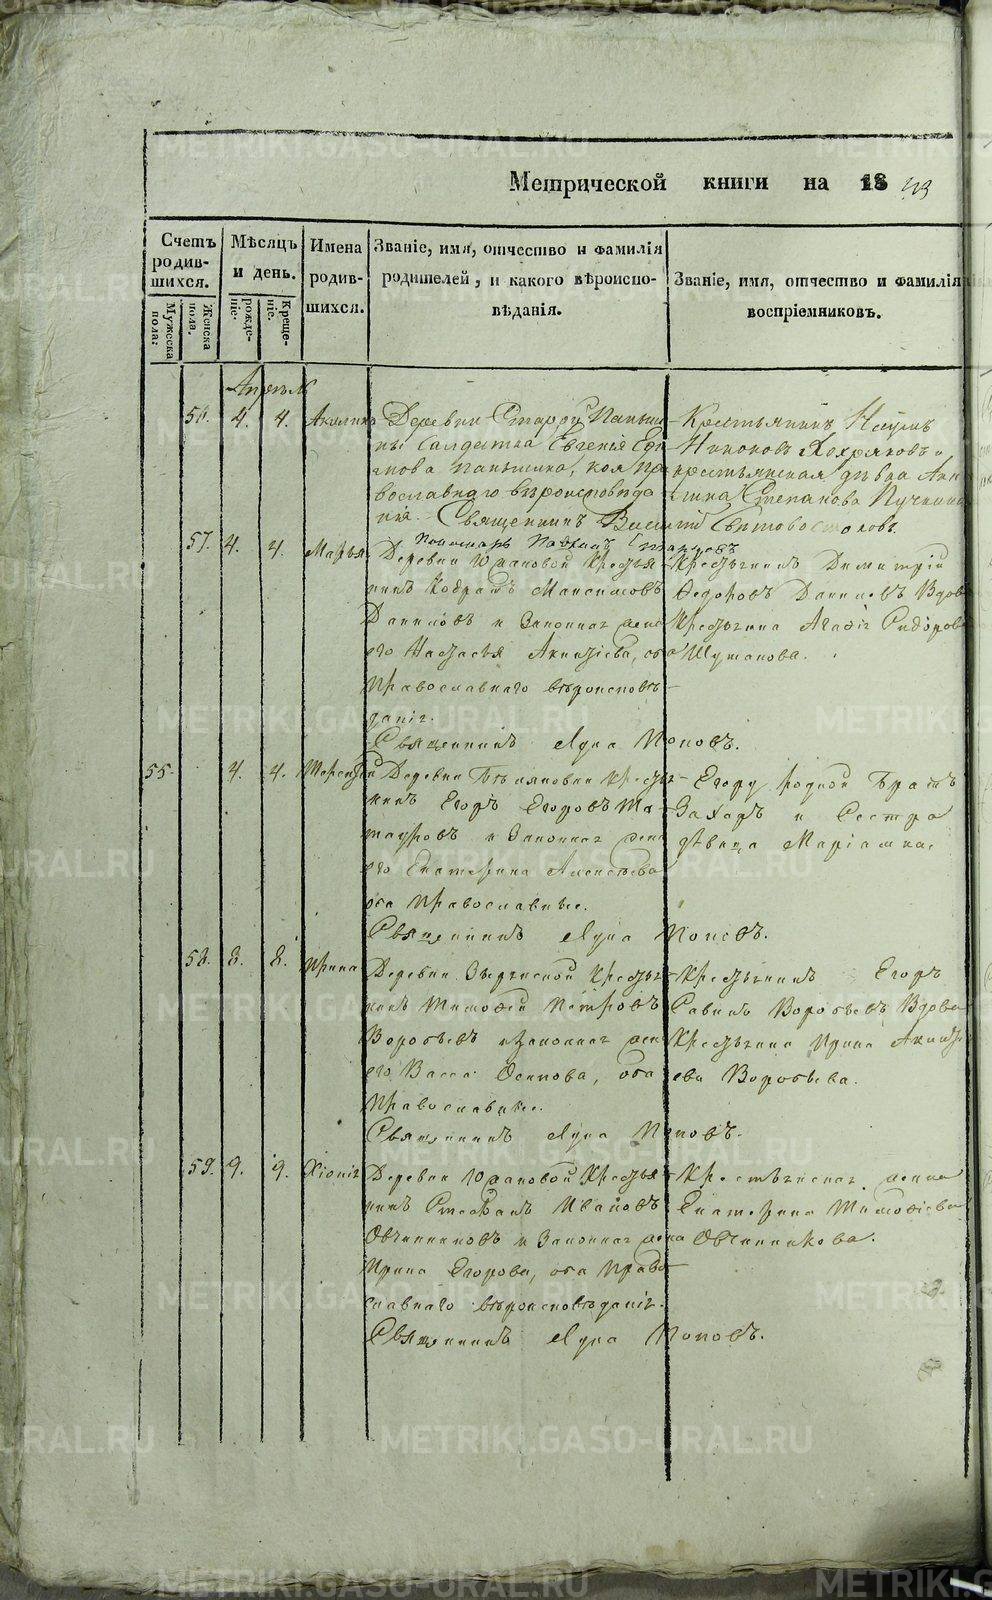 Метрической книги на 1843
Счетъ родившихся.
Мужеска пола.
Женска пола.
Мѣсяцъ и день.
рожденіе.
Крещеніе.
Имена родившихся.
Званіе, имя, отчество и фамилія
родителей, и какого вѣроиспо-
вѣданія.
Званіе, имя, отчество и фамилія
воспріемниковъ.
Апрѣль
56. 4. 4. Акилина
Деревни Старой Паньши
ны Салдатка Евгенія
мова Паньшина, коя пра
вославнаго вѣроисповѣда
нія. Священникъ Василій
Крестьянинъ Наумъ
Никоновъ Хохряковъ и
крестьянская дѣвка Аки
лина Степанова
Пономарь
57. 4. 4. Марья
Деревни Юрановой Кресть
нинъ Кодратъ Максимовъ
Даниловъ и Законная жена
его Настасья оба
Православнаго вѣроисповѣ
данія.
Священникъ Лука Поповъ.
Крестьянинъ Димитрій
Федоровъ Даниловъ Вдова
Крестьянка Агафія Сидорова
55. 4. 4. Терентій
Деревни Крестья
нинъ Егоръ Егоровъ
и Законная жена
его Екатерина Алексѣева
оба Православные.
Священникъ Лука Поповъ.
Егору родной Братъ
Захаръ и Сестра
дѣвица Маріамна.
58. 8. 8. Ирина
Деревни Крестья
нинъ Тимофей Петровъ
Воробьевъ и Законная жена
его Васса Осипова, оба
Православные.
Священникъ Лука Поповъ.
Крестьянинъ Егоръ
Савинъ Воробьевъ Вдова
Крестьянка Ирина
ева Воробьева.
59. 9. 9. Хіонія
Деревни Юрановой Крестья
нинъ Стефанъ Ивановъ
Овчинниковъ и Законная жена
Ирина Егорова, оба Право
славнаго вѣроисповѣданія.
Священникъ Лука Поповъ.
Крестьянская жена
Екатерина Тимофѣева
Овчинникова.
METRIKI.GASO-URAL.RU